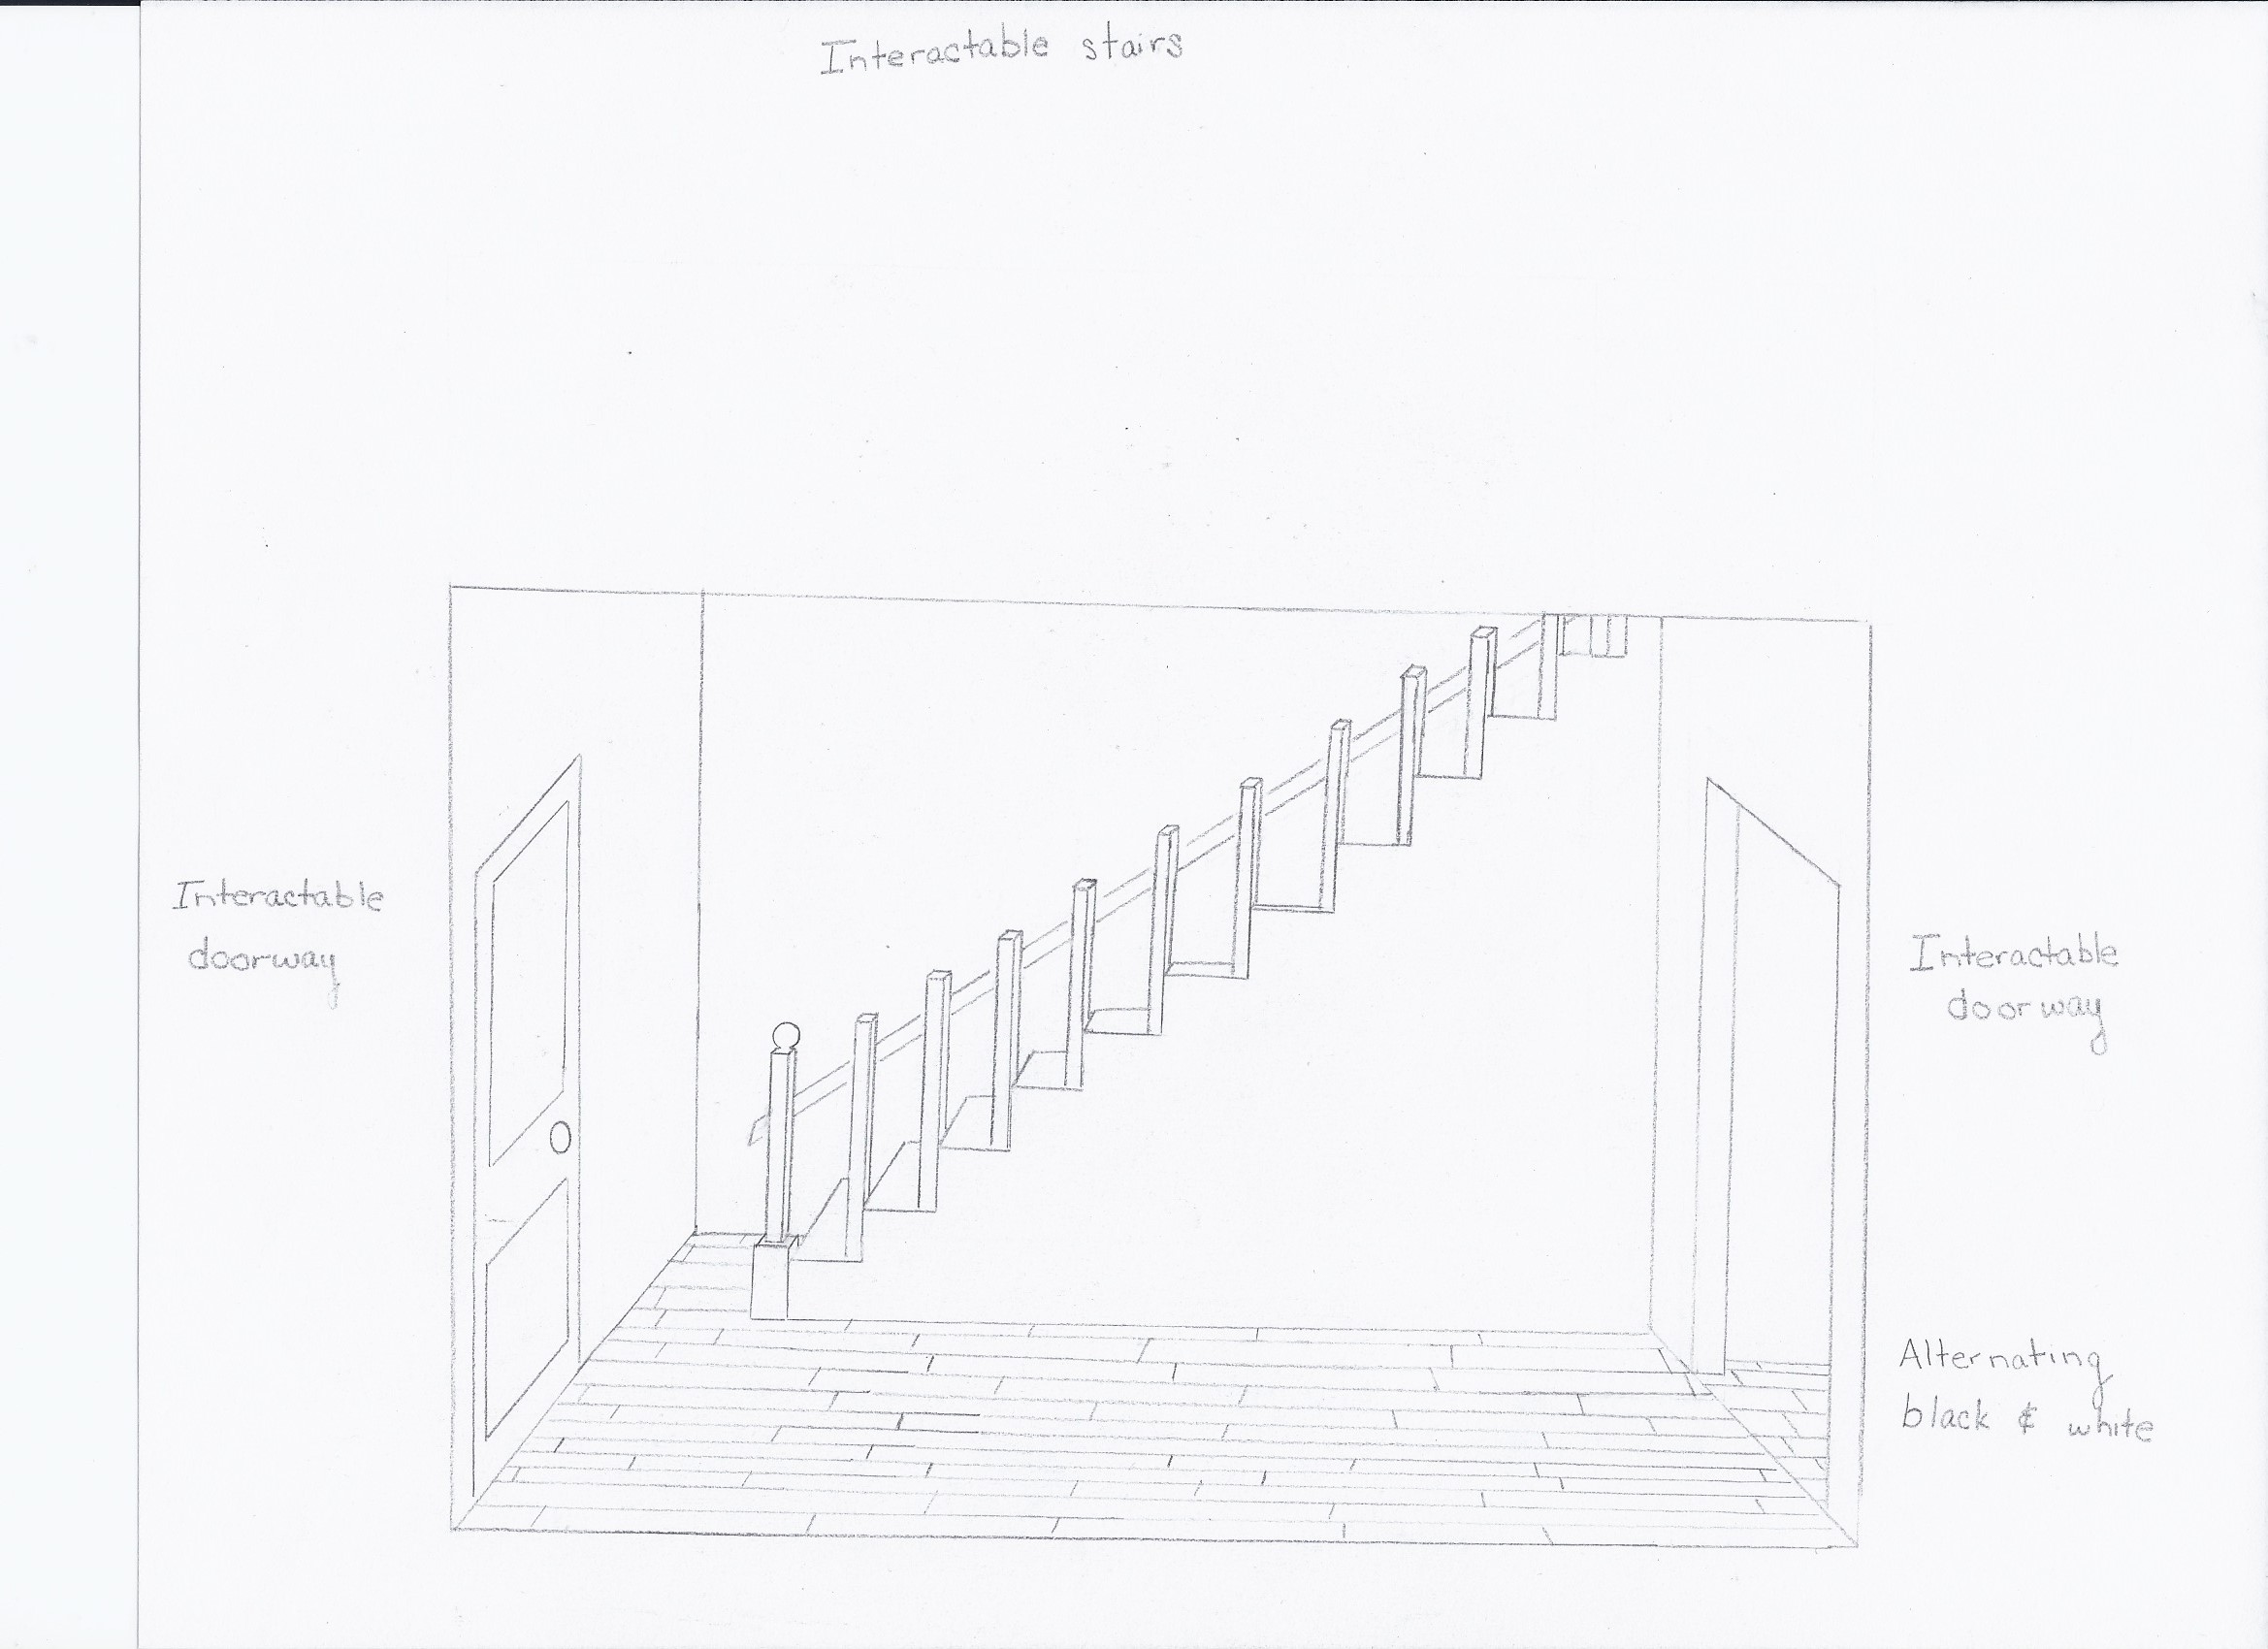 Interactable stairs
Interactable
doorway
Interactable
doorway
Alternating
black & white